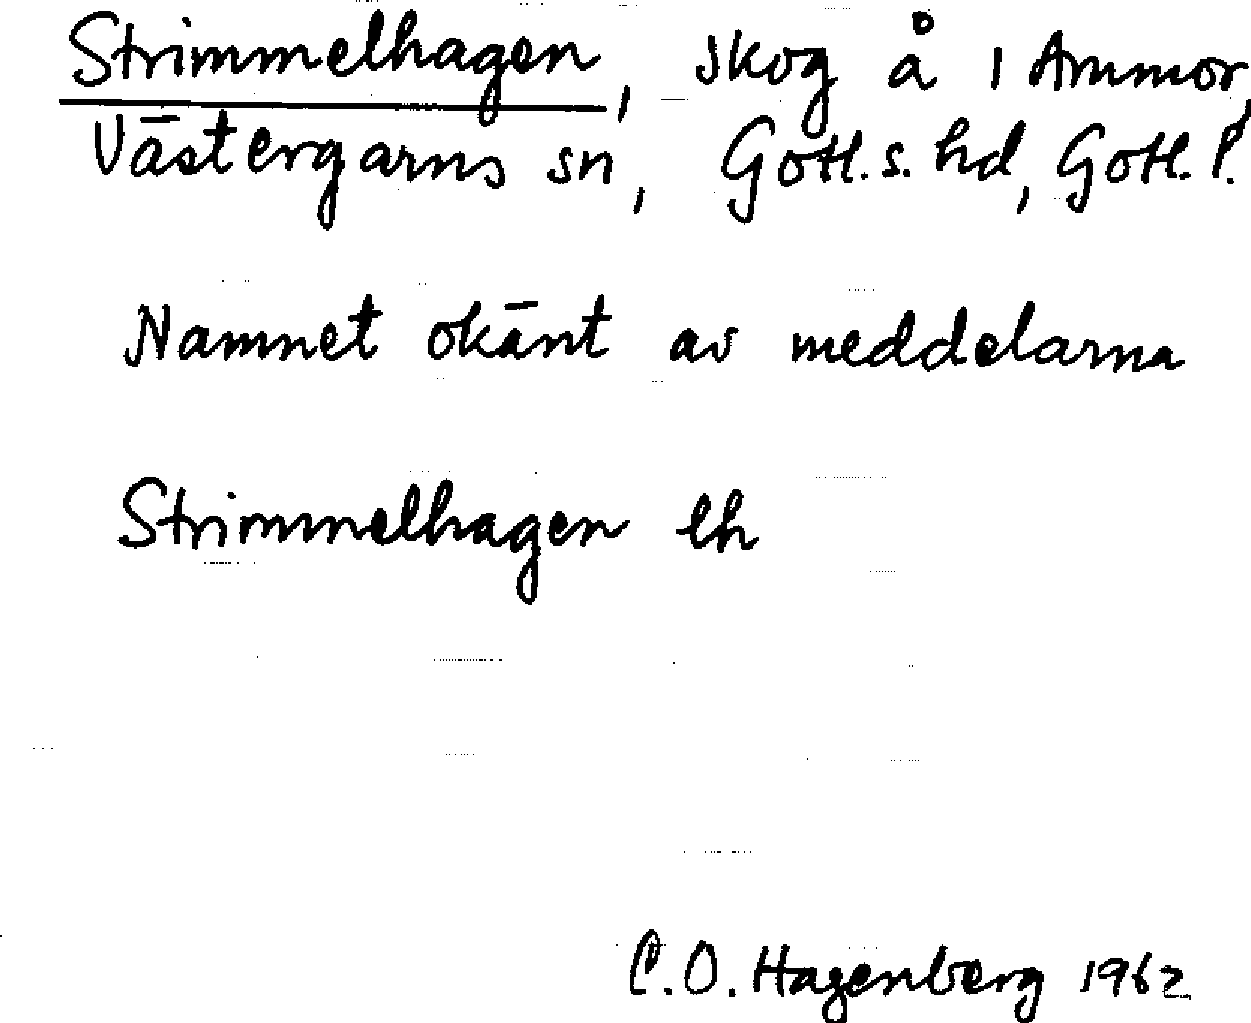 Strimmelhagen, skog å 1 Ammor,
Västergarns sn, Gotl. s. hd, Gotl. l.
Namnet okänt av meddelarna
Strimmelhagen lh
C. O. Hagenberg 1962